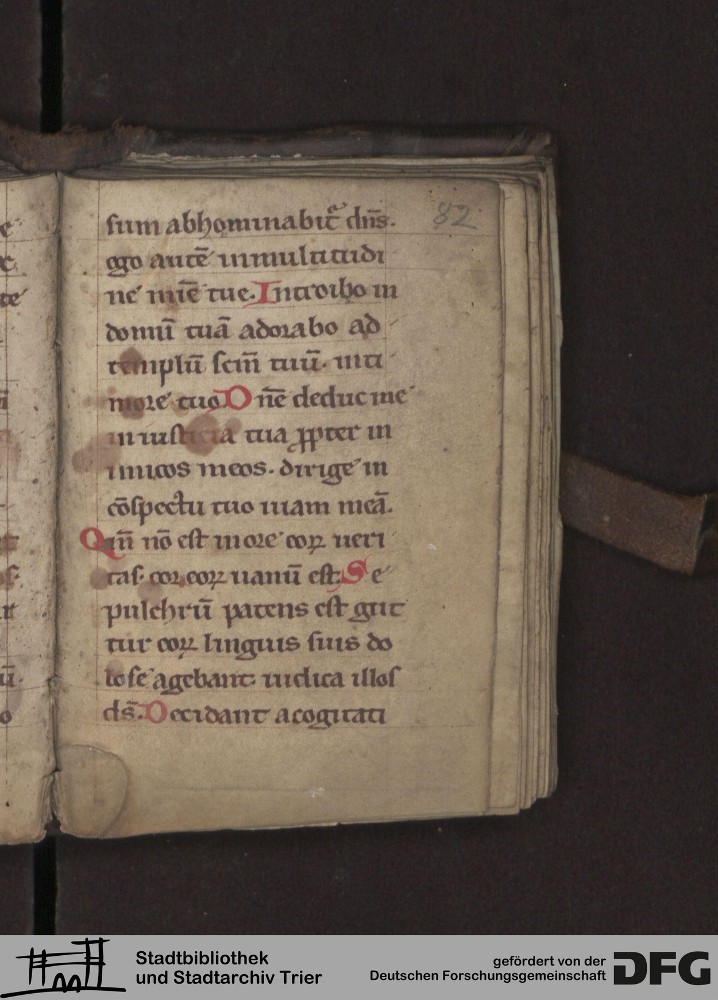 sum abhominabit᷑ dn̄s.
ego autē inmultitudi
ne mīe tue. Introibo in
domū tuā adorabo ad
templū sc̄m tuū. inti
more tuo D nē deduc me
in iusticia tua ꝓpter in
imicos meos. dirige in
cōspectu tuo uiam meā.
Qm̄ nō est inore eoꝝ ueri
tas. cor eoꝝ uanū est. Se
pulchrū patens est gut
tur eoꝝ linguis suis do
lose agebant. iudica illos
ds̄. Decidant acogitati
82
Stadtbibliothek
und Stadtarchiv Trier
gefördert von der
Deutschen Forschungsgemeinschaft
DFG